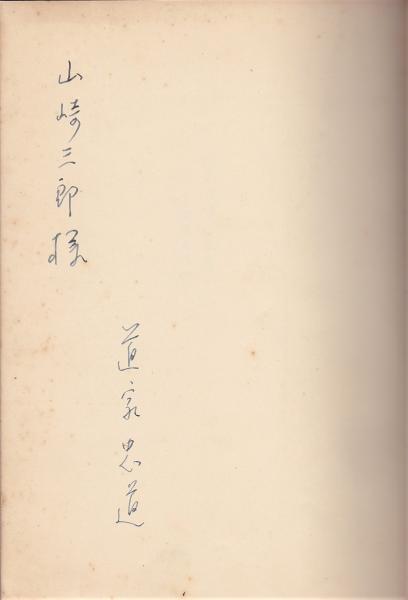 山崎三郎様
道家忠道